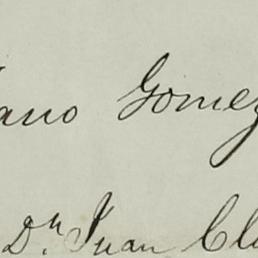 ano Gomez
Dn. Juan Cl